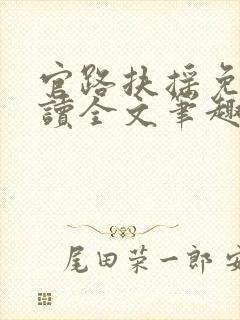 官路扶搖免
讀全文筆趣
尾田荣一郎 安